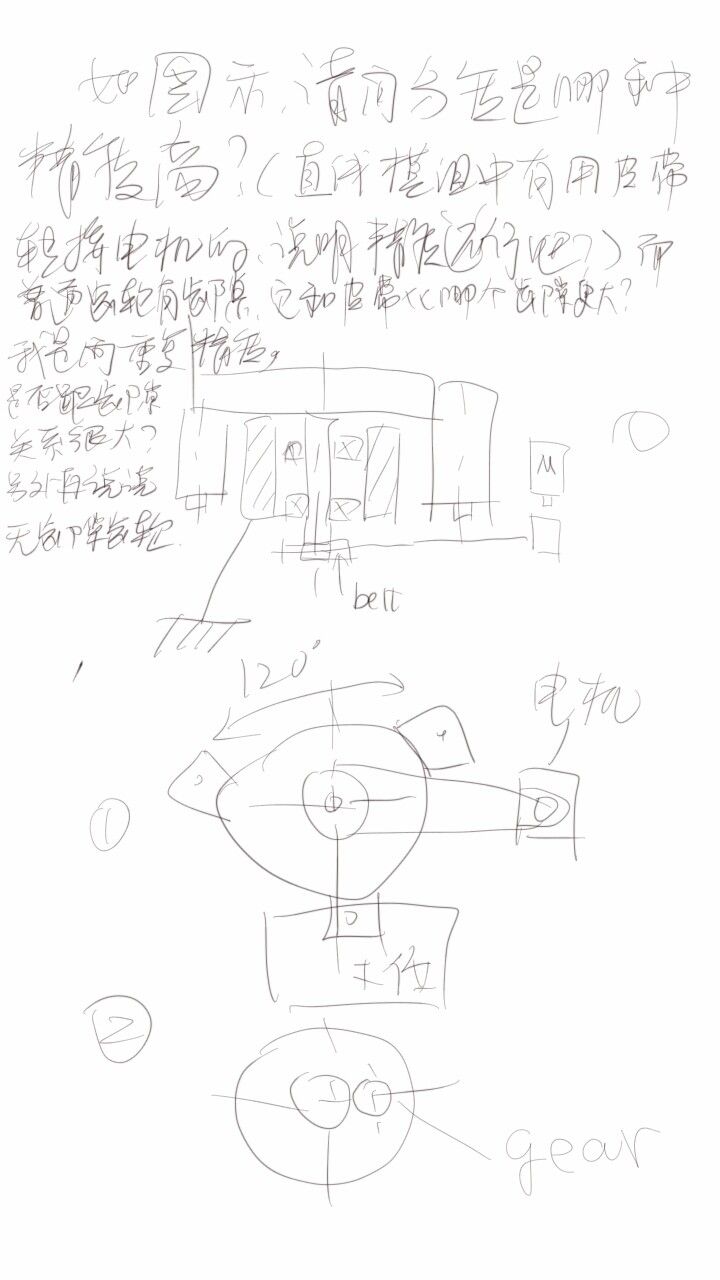 如图示、请问分告是哪种
精度高?(直线模组中有用皮带
轮接电机的、说明精度还行吧?)而
普通齿轮有齿隙,它和皮带比哪个齿隙更大?
我是两重复精度。
是否跟齿隙
关系很大?
另外再说说
无齿隙齿轮.
①
M
belt
120°
电机
①
工位
②
gear